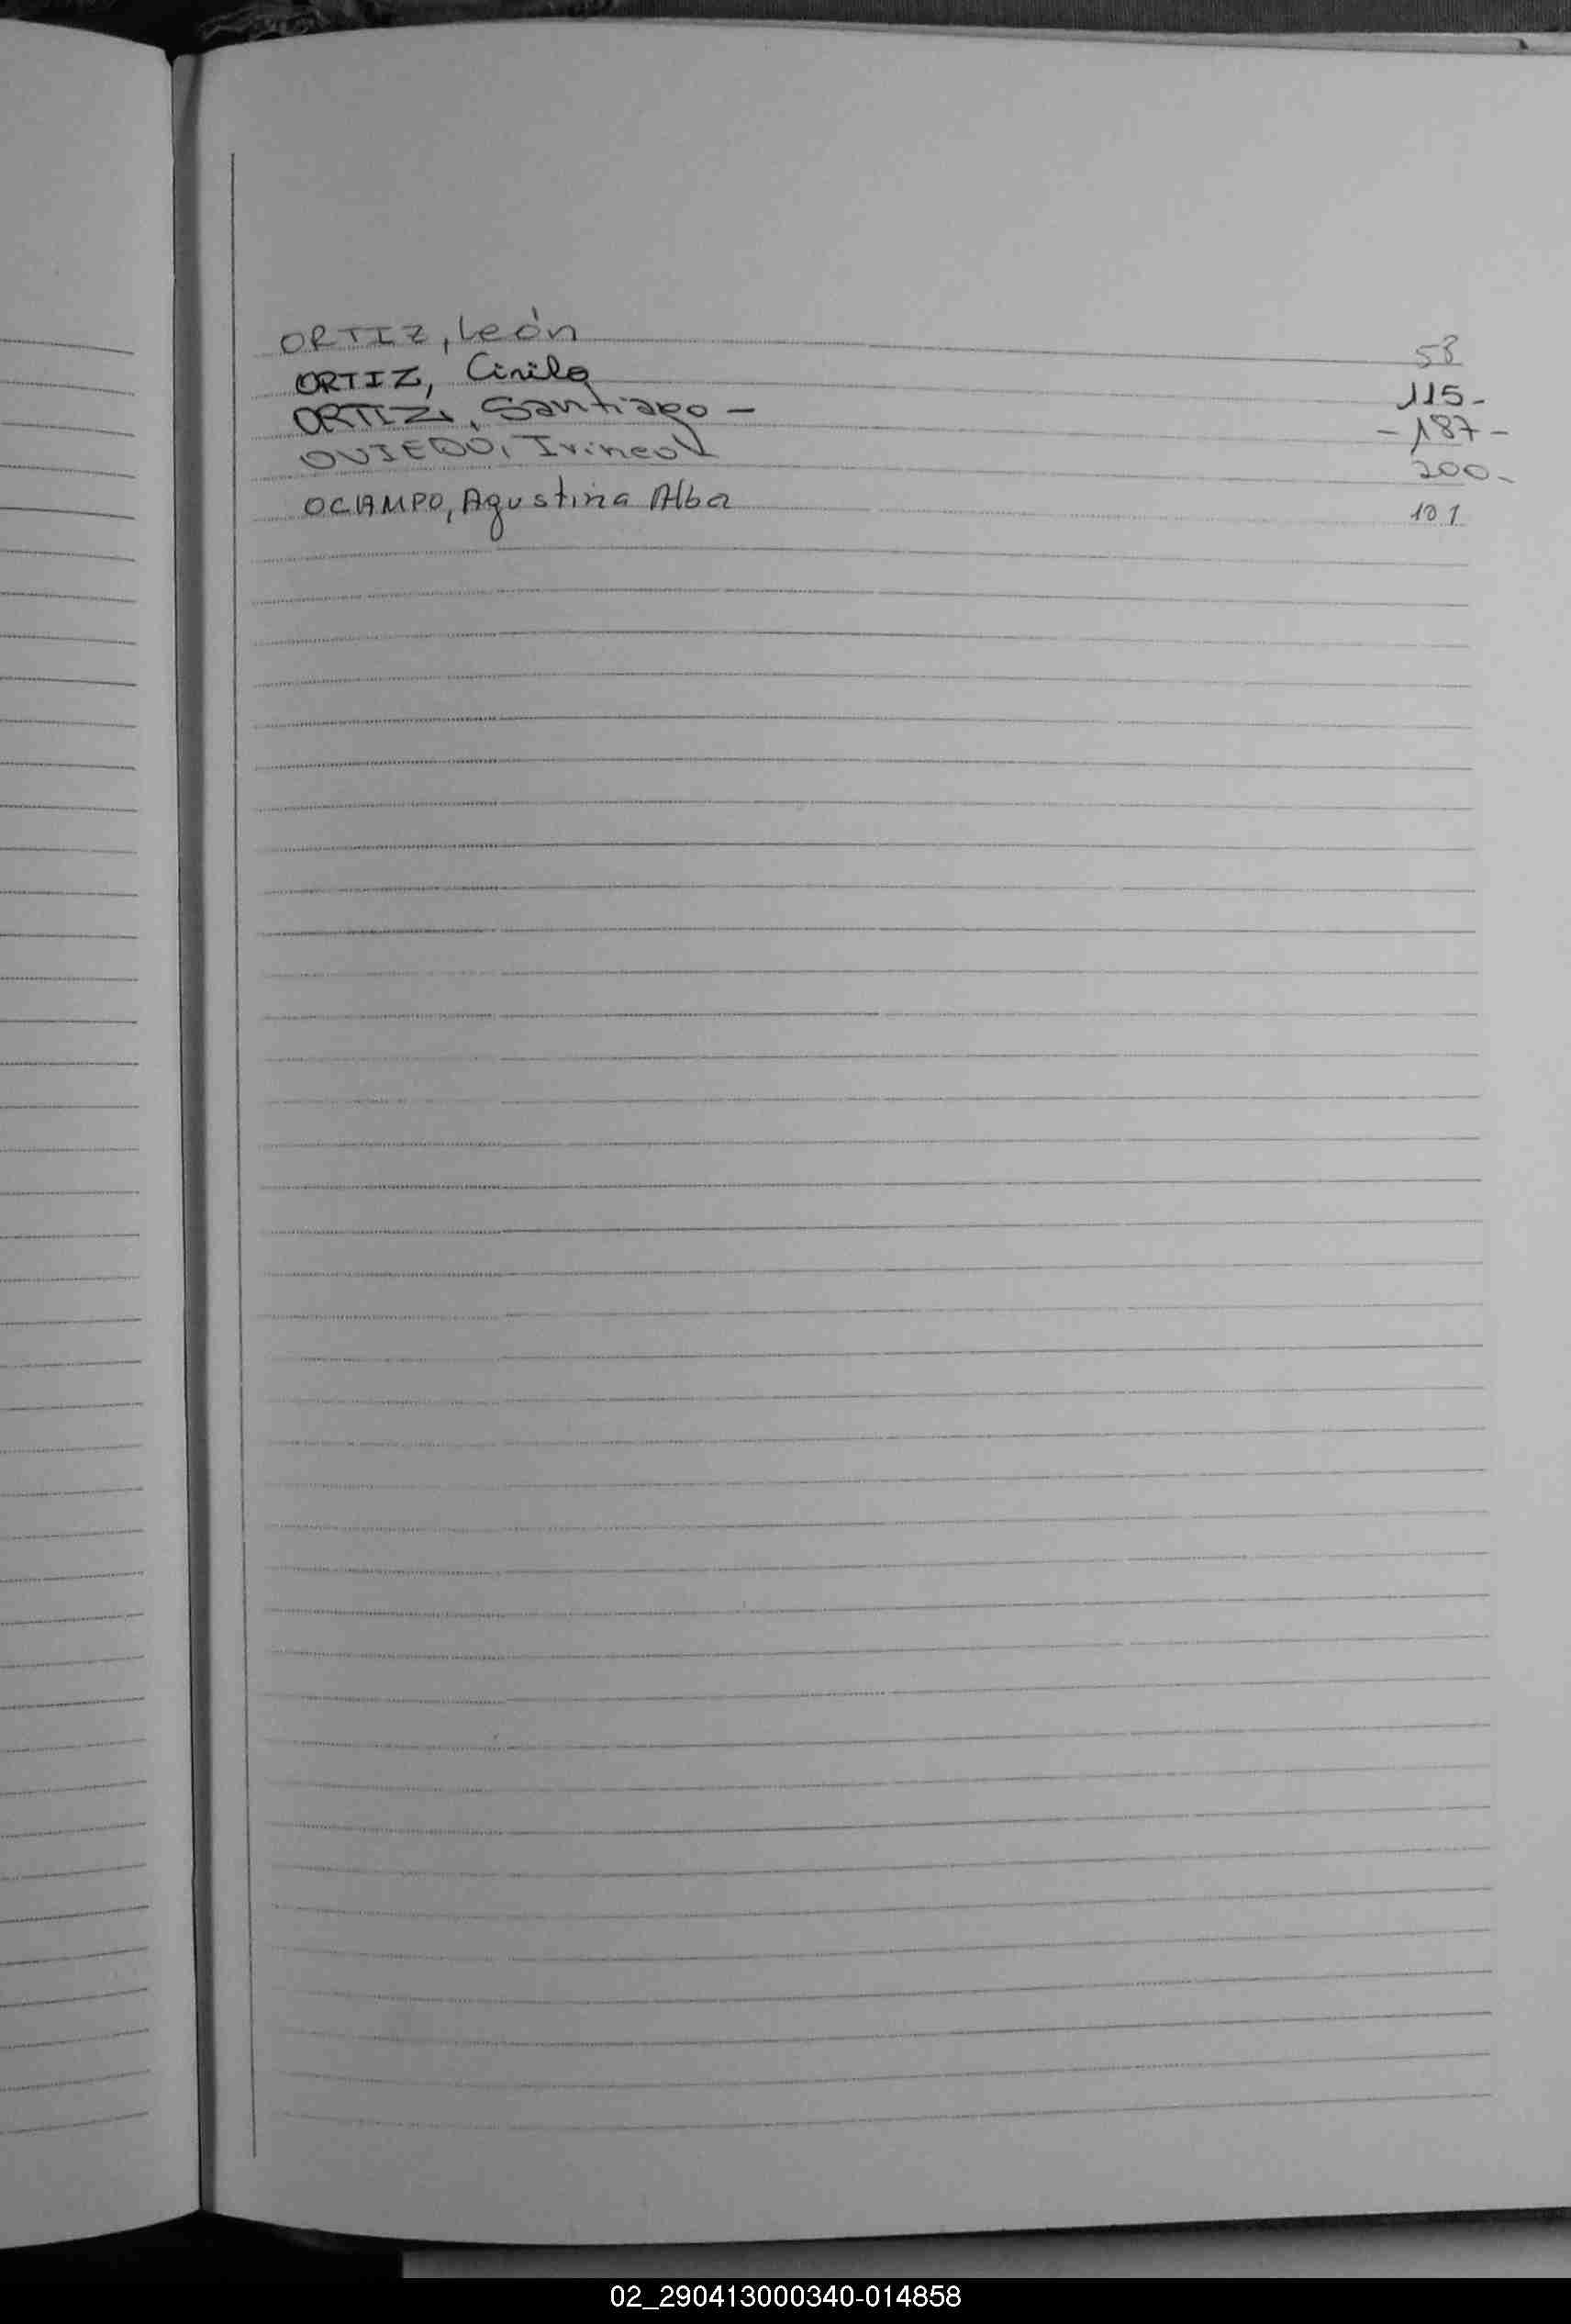 ORTIZ, León 58
ORTIZ, Cirilo 115-
ORTIZ, Santiago - -187-
OVIEDO, Irineo 200-
OCAMPO, Agustina Alba 101
02_290413000340-014858